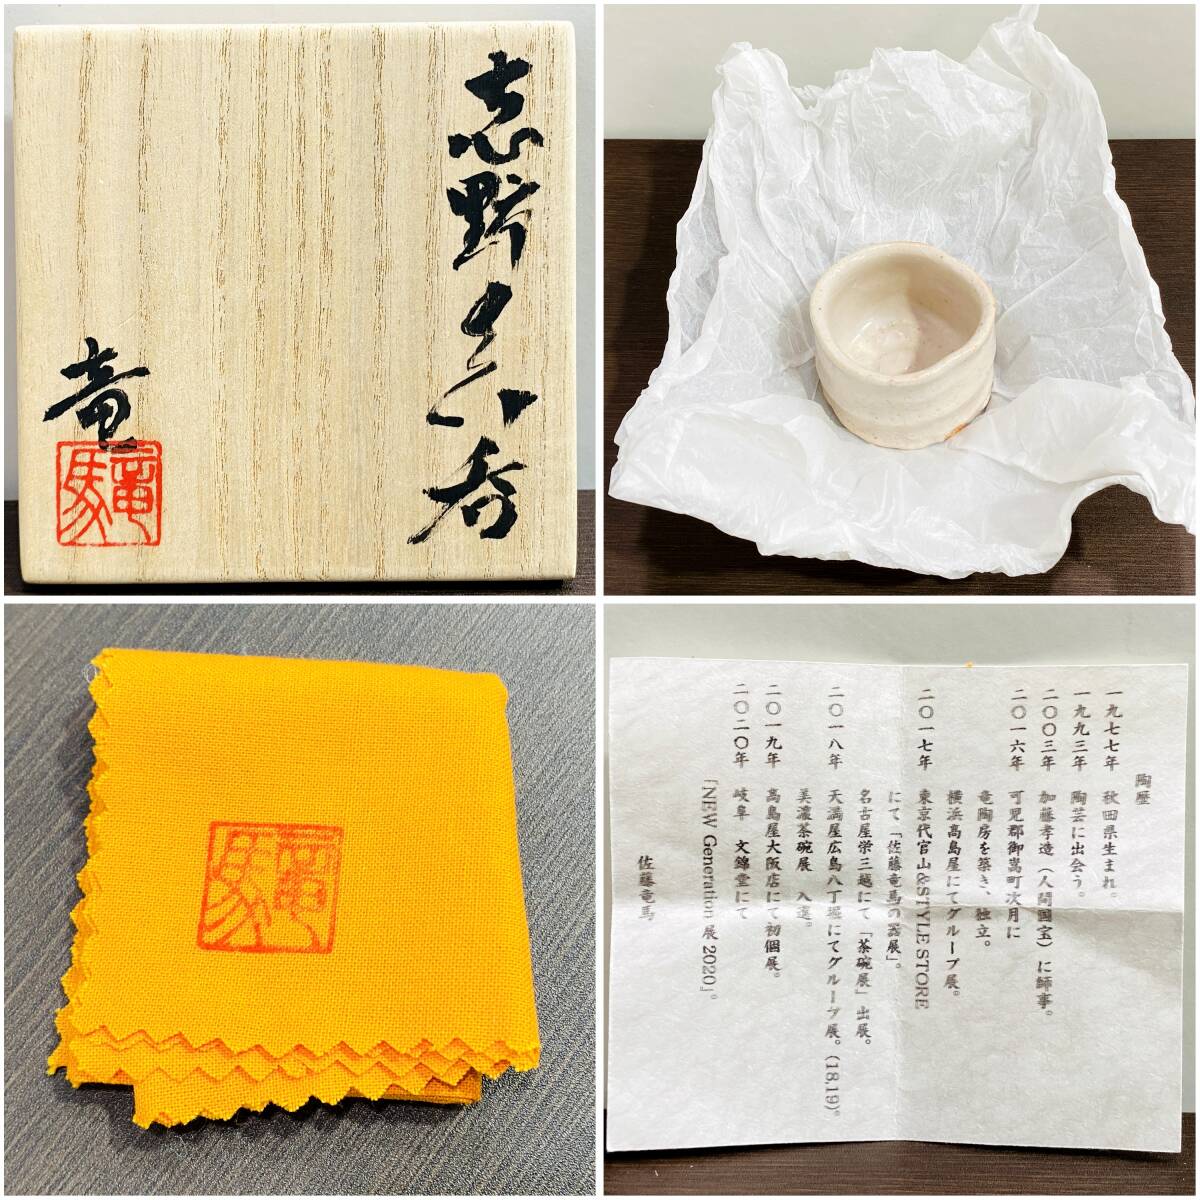 志野ぐい呑
竜
竜馬
竜馬
陶歴
一九七七年 秋田県生まれ。
一九九三年 陶芸に出会う。
二〇〇三年 加藤孝造(人間国宝)に師事。
二〇一六年 可児郡御嵩町次月に
竜陶房を築き、独立。
横浜高島屋にてグループ展。
二〇一七年 東京代官山&STYLE STORE
にて「佐藤竜馬の器展」。
名古屋栄三越にて「茶碗展」出展。
二〇一八年 天満屋広島八丁堀にてグループ展。(18,19)。
美濃茶碗展 入選。
二〇一九年 高島屋大阪店にて初個展。
二〇二〇年 岐阜 文錦堂にて
「NEW Generation 展 2020」。
佐藤竜馬